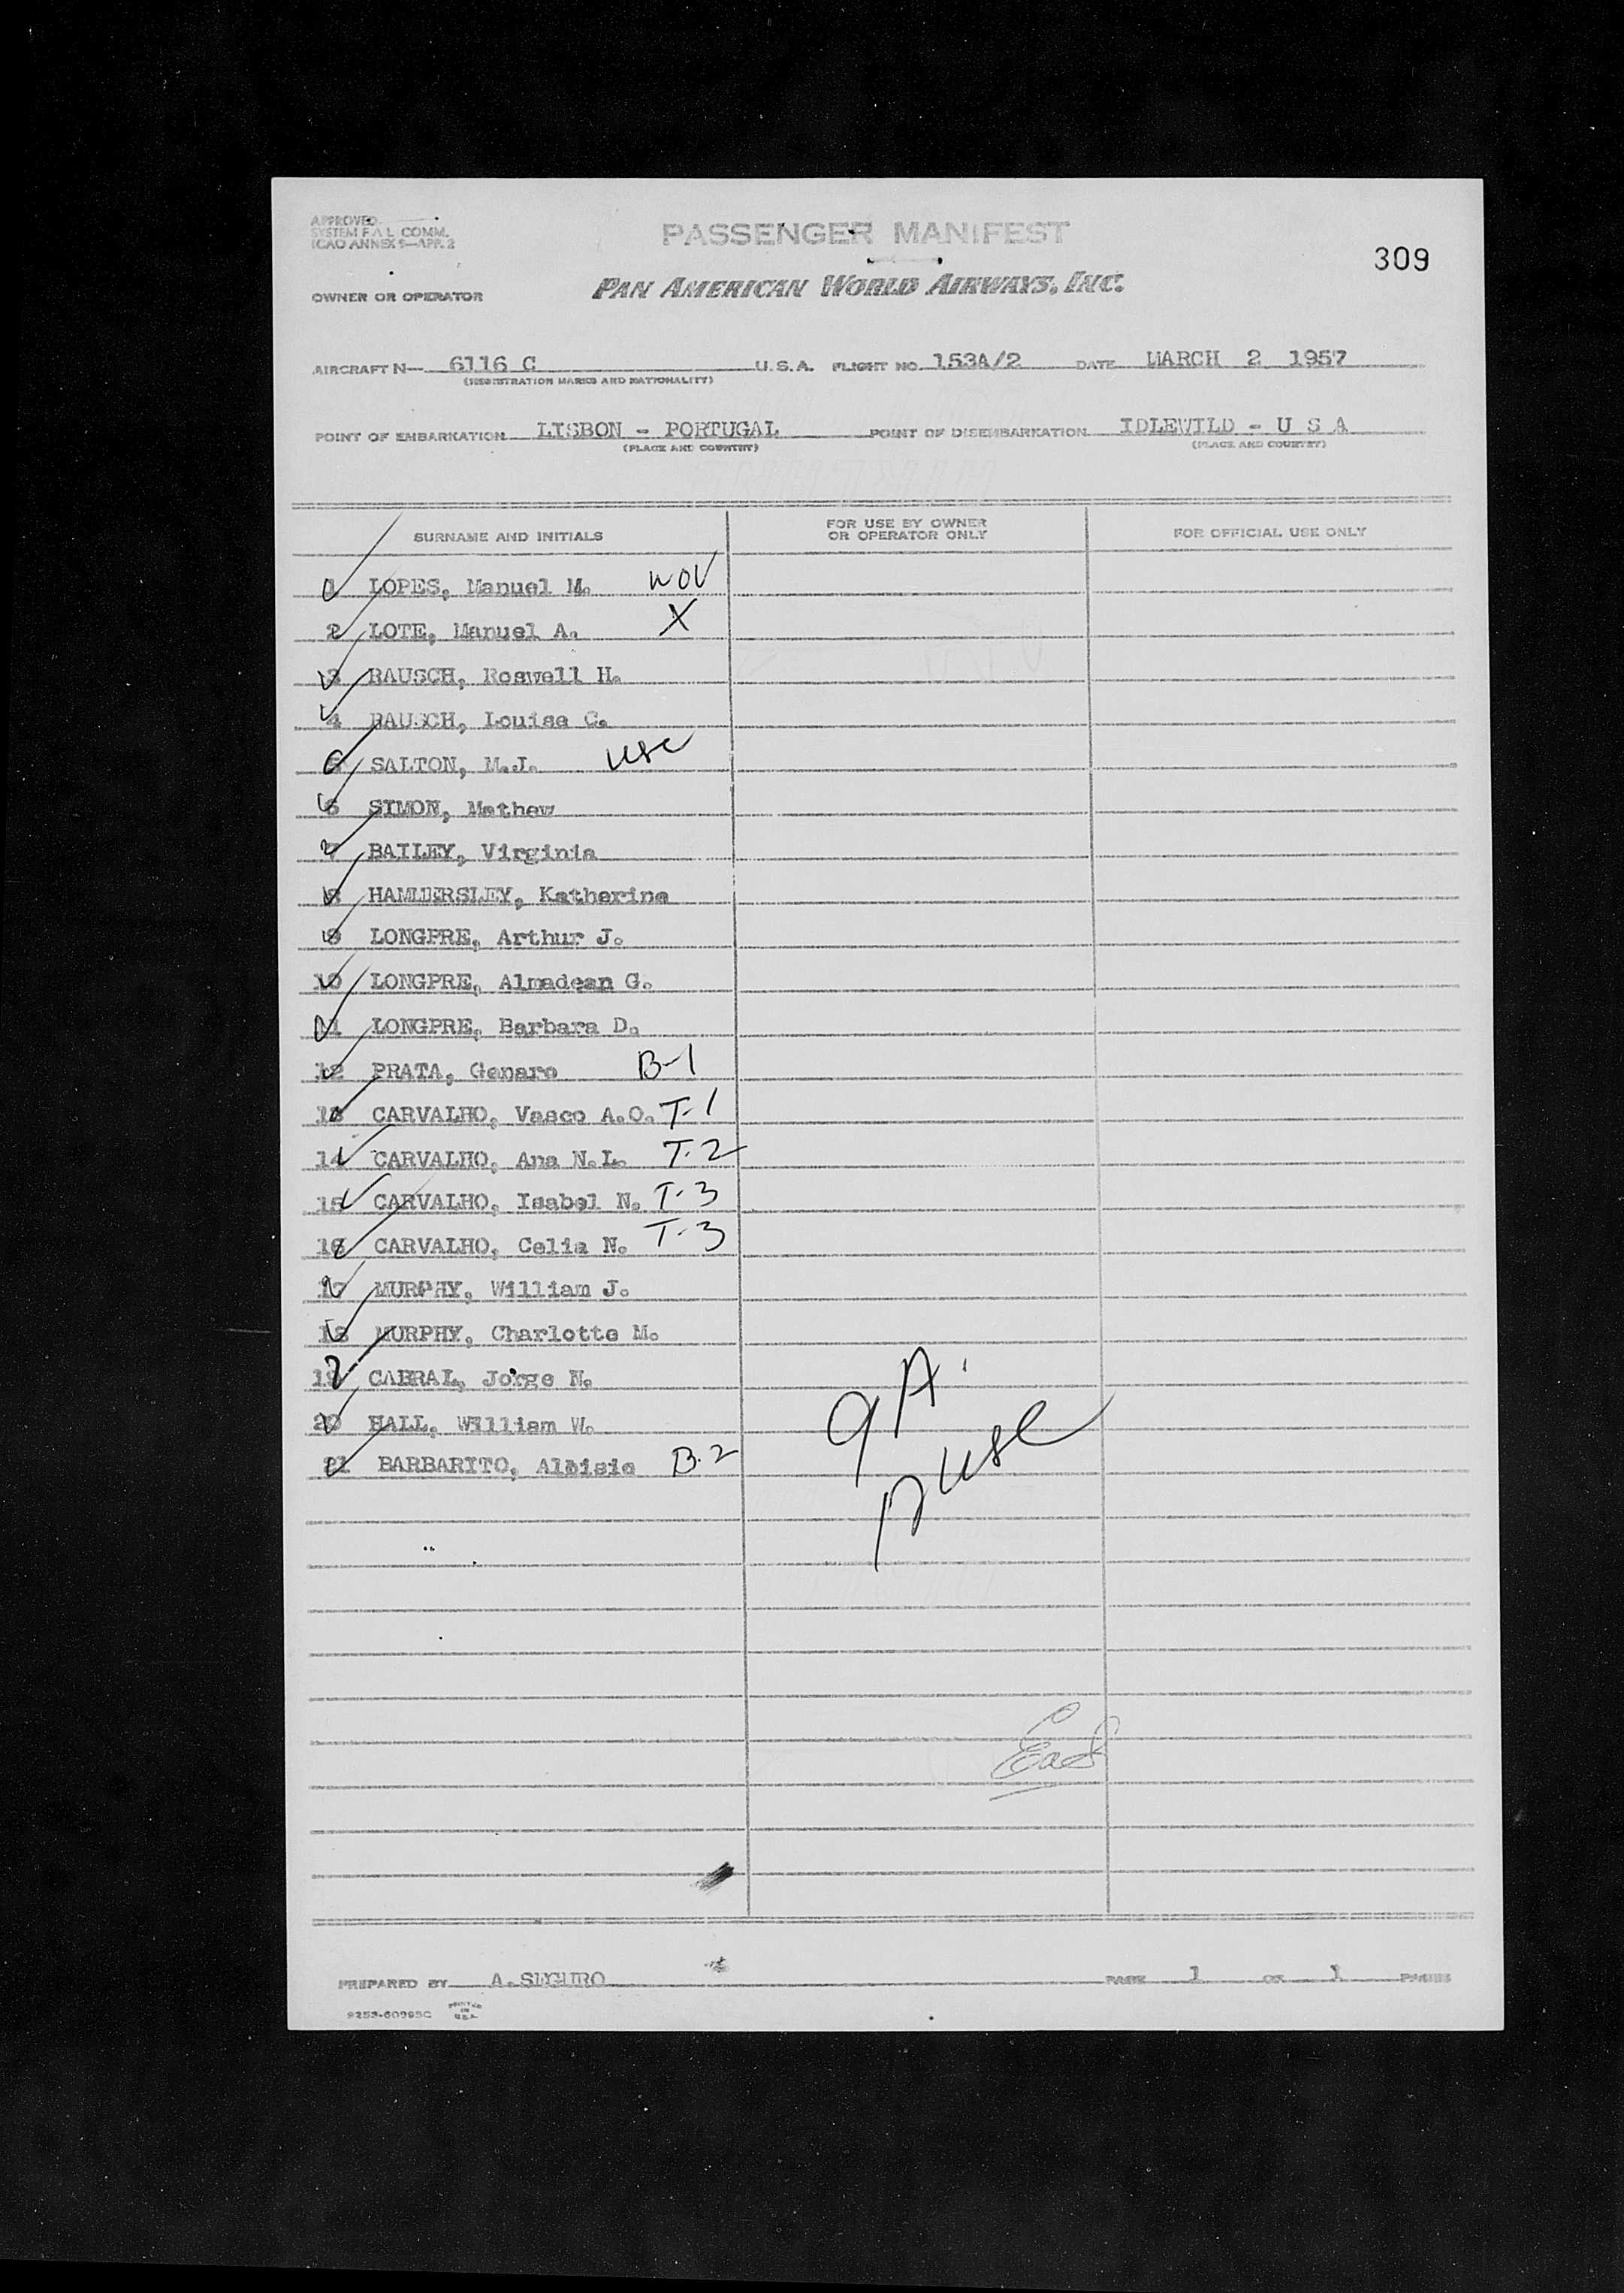 APPROVED
SYSTEM F.A.L. COMM.
ICAO ANNEX 9—APP. 2
PASSENGER MANIFEST
309
OWNER OR OPERATOR
PAN AMERICAN WORLD AIRWAYS, INC.
AIRCRAFT N— 6116 C U.S.A. FLIGHT NO. 153A/2 DATE MARCH 2 1957
(REGISTRATION MARKS AND NATIONALITY)
POINT OF EMBARKATION LISBON - PORTUGAL POINT OF DISEMBARKATION IDLEWILD - U S A
(PLACE AND COUNTRY) (PLACE AND COUNTRY)
SURNAME AND INITIALS FOR USE BY OWNER OR OPERATOR ONLY FOR OFFICIAL USE ONLY
1 LOPES, Manuel M.
2 LOTE, Manuel A. X
3 RAUSCH, Roswell H.
4 RAUSCH, Louise C.
5 SALTON, M.J. usc
6 SIMON, Mathew
7 BAILEY, Virginia
8 HAMMERSLEY, Katherine
9 LONGPRE, Arthur J.
10 LONGPRE, Almadean G.
11 LONGPRE, Barbara D.
12 PRATA, Genaro B-1
13 CARVALHO, Vasco A.O. T-1
14 CARVALHO, Ana N.L. T-2
15 CARVALHO, Isabel N. T-3
16 CARVALHO, Celia N. T-3
17 MURPHY, William J.
18 MURPHY, Charlotte M.
19 CABRAL, Jorge N.
20 HALL, William W.
21 BARBARITO, Aloisio B-2
9 A.
usc
PREPARED BY A. SEGURO PAGE 1 OF 1 PAGES
PRINTED
IN
U.S.A.